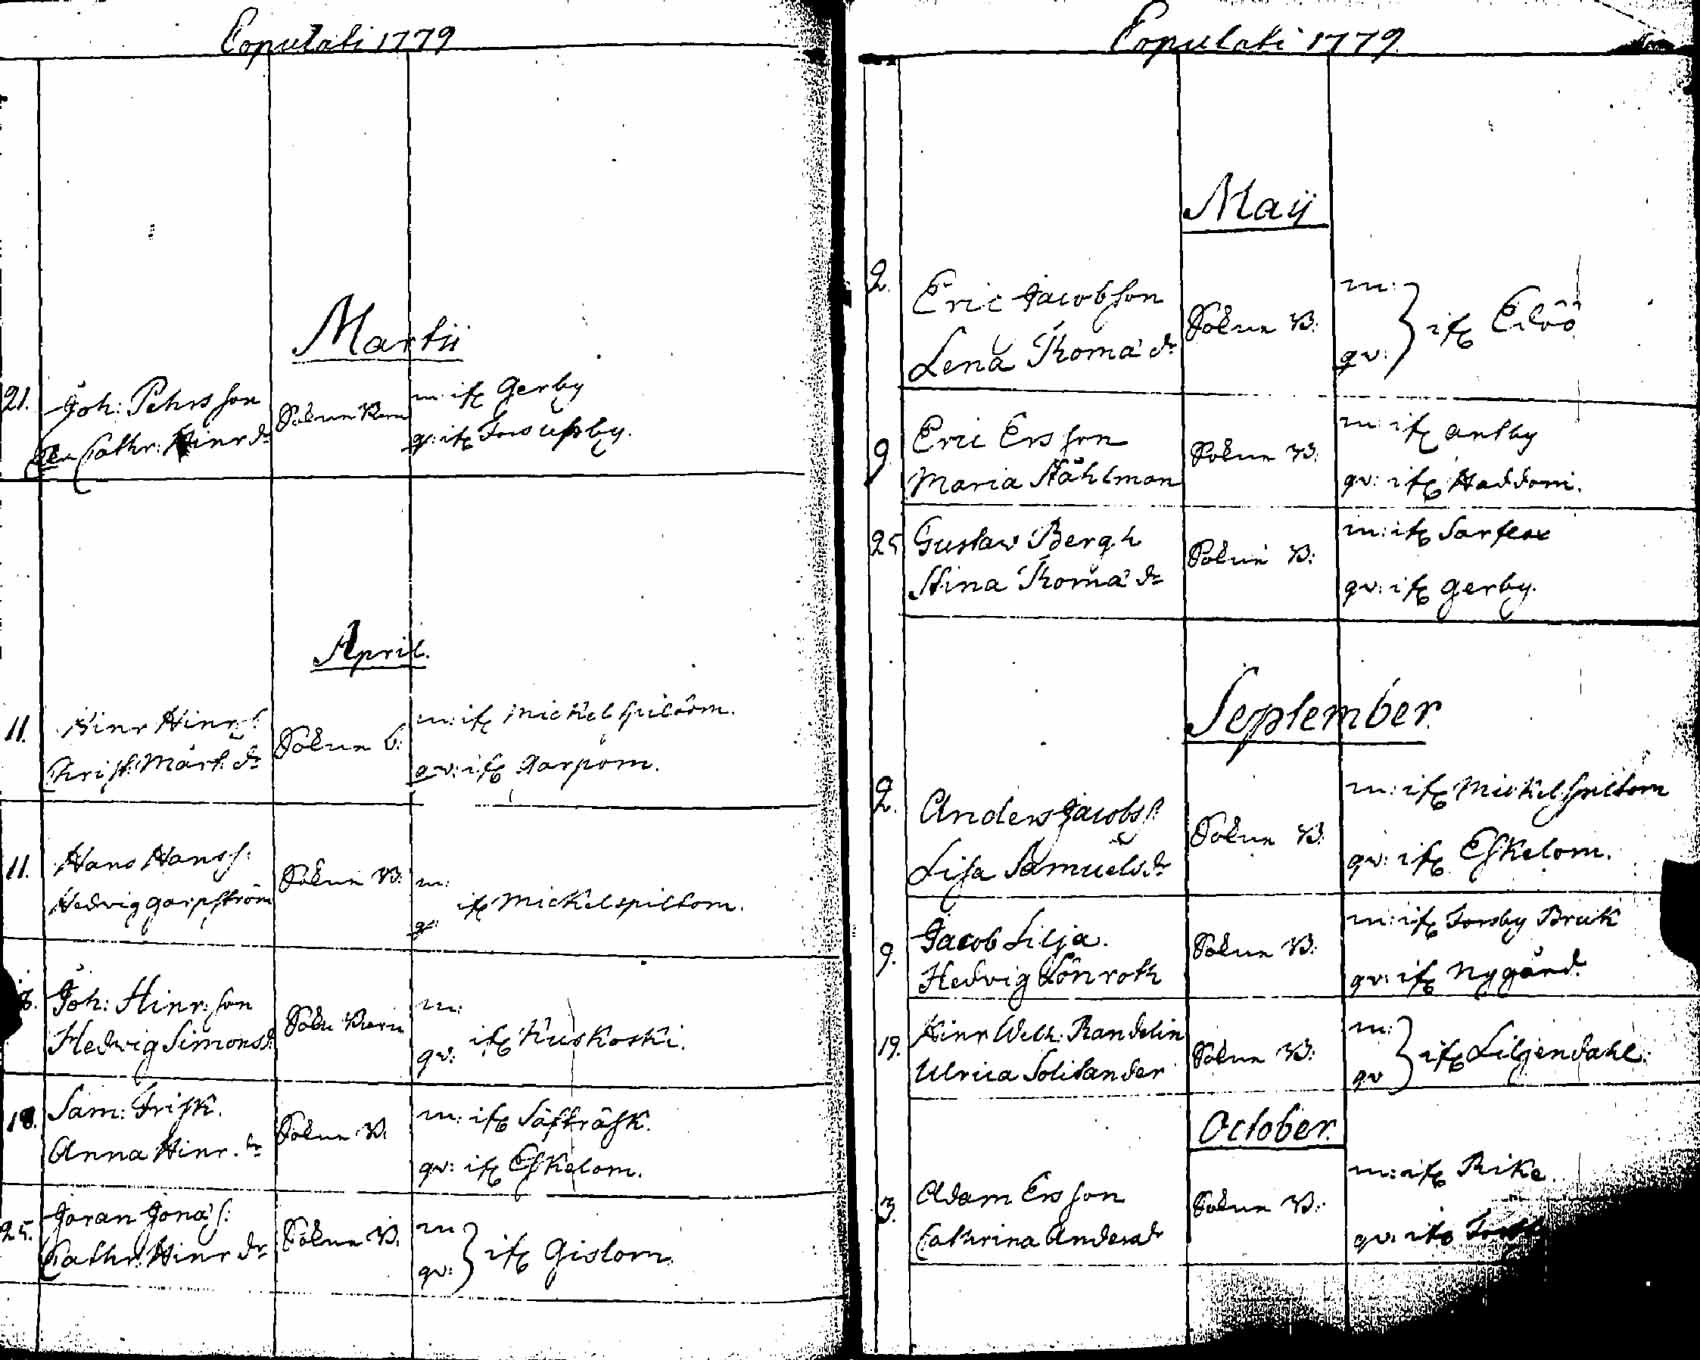 Copulati 1779
Martii
21. Joh: Pehrsson
Cathr: Hinr dr
m: ifr Gerby
q: ifr Forsusby.
April.
11. Hinr Hinrs:
Christ: Mårt. dr
m: ifr Mickelspiltom.
qv: ifr Garpom.
11. Hans Hanss:
Hedvig Garpström
Sokun B:
m:
q: ifr Mickelspiltom.
Joh: Hinr:son
Hedvig Simonsd:
m:
qv: ifr Kuskoski.
18. Sam: Frisk.
Anna Hinr. dr
Sokun B.
m: ifr Säfträsk.
qv: ifr Eskelom.
25. Göran Jonæs:
Cathr. Hinr dr
Sokun B.
m
qv: ifr Gislom.
Copulati 1779
Maij
2. Eric Jacobson
Lena Thoma dr
Sokun B:
m:
qv: ifr
9 Eric Ersson
Maria Ståhlman
Sokun B:
m: ifr Antby
qv: ifr Haddom.
25 Gustav Bergh
Stina Thoma dr
Sokun B:
m: ifr Sarflax
qv: ifr Gerby.
September
2. Anders Jacobs:
Lisa Samuelsdr
Sokun B:
m: ifr Mickelspiltom
qv: ifr Eskelom.
9. Jacob Lilja.
Hedvig Lönroth
Sokun B:
m: ifr Forsby Bruk
qv: ifr Nygård.
19. Hinr Welh: Randelin
Ulrica Solitander
Sokun B:
m:
qv ifr Liljendahl.
October.
3. Adam Ersson
Cathrina Andersdr
Sokun B:
m: ifr Rike
qv: ifr